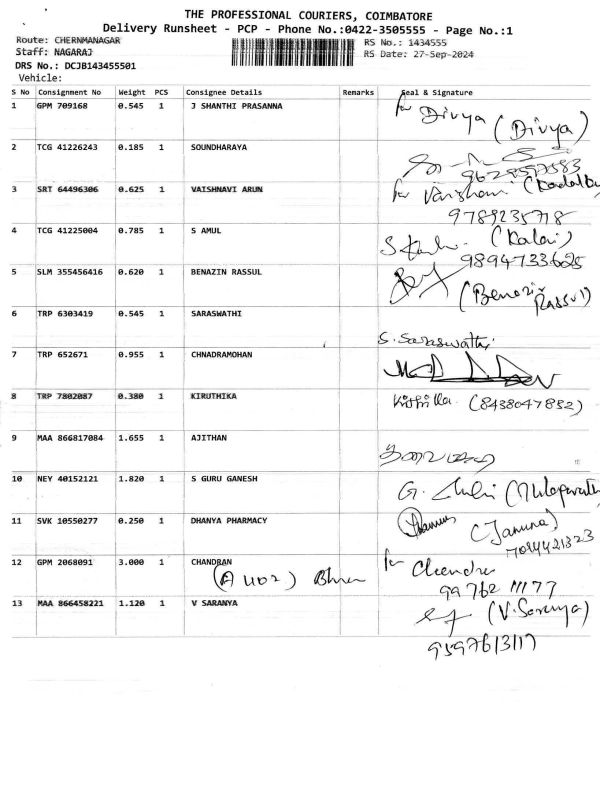 THE PROFESSIONAL COURIERS, COIMBATORE
Delivery Runsheet - PCP - Phone No.:0422-3505555 - Page No.:1
Route: CHERNMANAGAR RS No.: 1434555
Staff: NAGARAJ RS Date: 27-Sep-2024
DRS No.: DCJB143455501
Vehicle:
S No Consignment No Weight PCS Consignee Details Remarks Seal & Signature
1 GPM 709168 0.545 1 J SHANTHI PRASANNA for Divya (Divya)
2 TCG 41226243 0.185 1 SOUNDHARAYA
3 SRT 64496306 0.625 1 VAISHNAVI ARUN for
9789235718
4 TCG 41225004 0.785 1 S AMUL (Kalai)
9894733625
5 SLM 355456416 0.620 1 BENAZIN RASSUL (Benazir
Rassul)
6 TRP 6303419 0.545 1 SARASWATHI
S. Saraswathi
7 TRP 652671 0.955 1 CHNADRAMOHAN
8 TRP 7802087 0.380 1 KIRUTHIKA (8438047852)
9 MAA 866817084 1.655 1 AJITHAN
10 NEY 40152121 1.820 1 S GURU GANESH G.
11 SVK 10550277 0.250 1 DHANYA PHARMACY (Jamuna)
12 GPM 2068091 3.000 1 CHANDRAN for Chendra
99762 11177
13 MAA 866458221 1.120 1 V SARANYA (V. Saranya)
9597613117